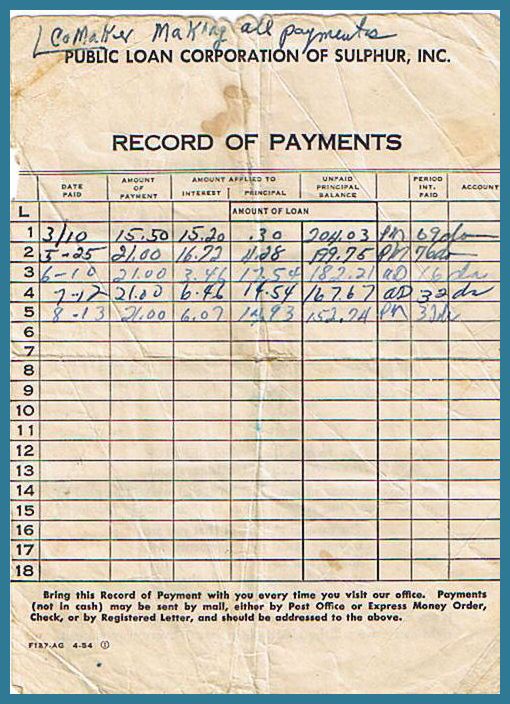 CoMaker Making all payments
PUBLIC LOAN CORPORATION OF SULPHUR, INC.
RECORD OF PAYMENTS
DATE PAID AMOUNT OF PAYMENT AMOUNT APPLIED TO INTEREST PRINCIPAL UNPAID PRINCIPAL BALANCE PERIOD INT. PAID ACCOUNT
L AMOUNT OF LOAN
1 3/10 15.50 15.20 .30 204.03 69da
2 5-25 21.00 16.72 4.28 199.75 76da
3 6-10 21.00 3.46 17.54 182.21 16 da
4 7-12 21.00 6.46 14.54 167.67 32 da
5 8-13 21.00 6.07 14.93 152.74 32da
6
7
8
9
10
11
12
13
14
15
16
17
18
Bring this Record of Payment with you every time you visit our office. Payments
(not in cash) may be sent by mail, either by Post Office or Express Money Order,
Check, or by Registered Letter, and should be addressed to the above.
F137-AG 4-54